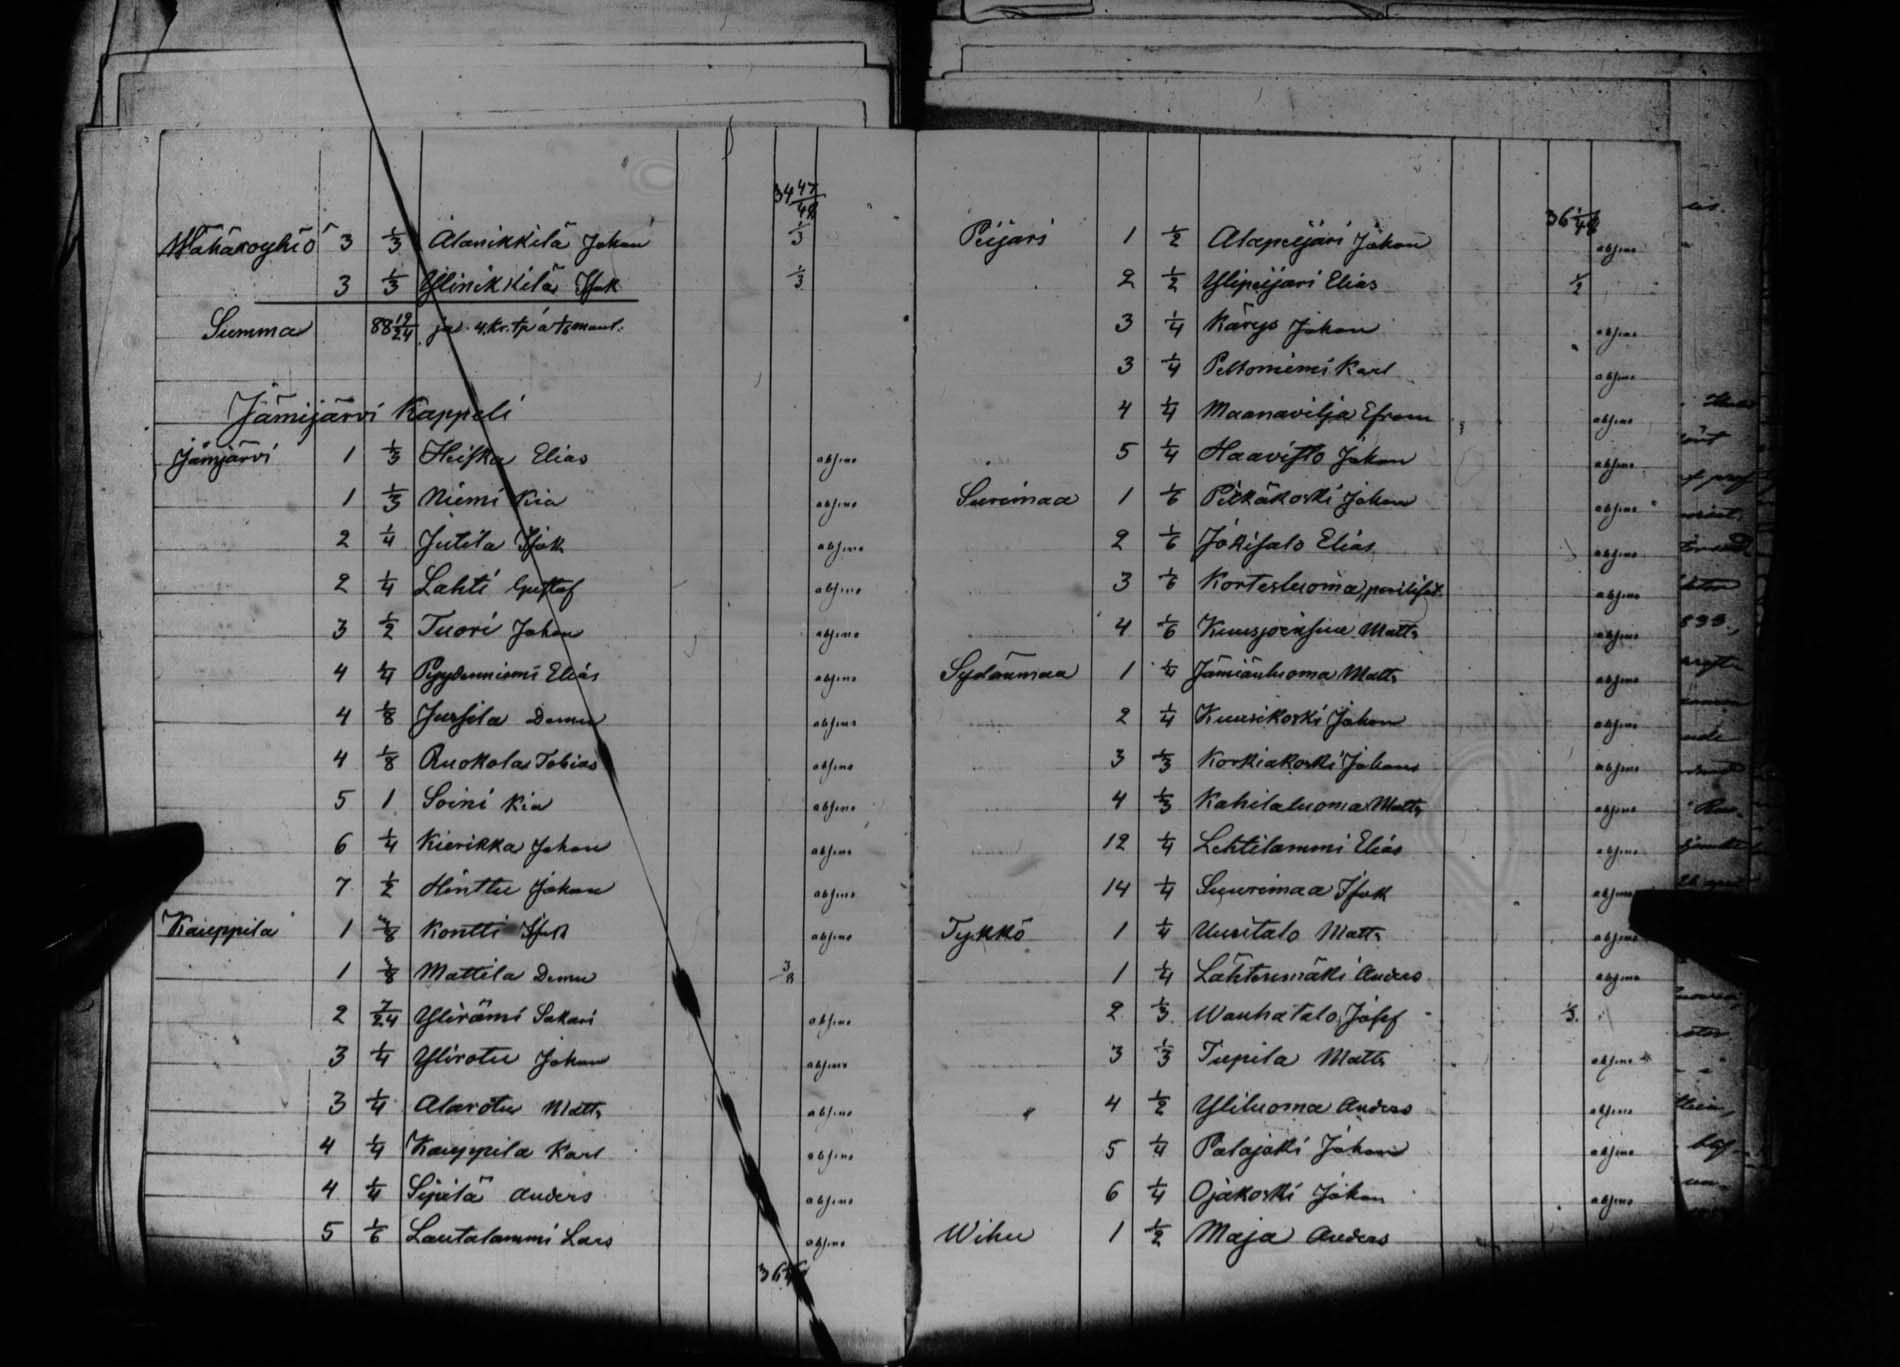 34 47/48
Wähäröyhiö 3 1/3 Alanikkilä Johan 1/3
3 1/3 Ylinikkilä Isak 1/3
Summa 88 19/24 ja 4 kr. tp à 1/8 mant.
Jämijärvi Kappeli
Jämijärvi 1 1/3 Heiska Elias absens
1 1/3 Niemi Kia absens
2 1/4 Jutila Isak absens
2 1/4 Lahti Gustaf absens
3 1/2 Tuori Johan absens
4 1/4 Pyydenniemi Elias absens
4 1/8 Jussila Demu absens
4 1/8 Ruokola Tobias absens
5 1 Soini Kia absens
6 1/4 Kierikka Johan absens
7 1/2 Hinttu Johan absens
Kauppila 1 3/8 Kontti Isak absens
1 3/8 Mattila Demu 3/8
2 7/24 Ylirämi Sakari absens
3 1/4 Ylirotu Johan absens
3 1/4 Alarotu Matts absens
4 1/4 Kauppila Karl absens
4 1/4 Sipilä Anders absens
5 1/6 Lautalammi Lars absens
36 1/48
36 1/48
Peijari 1 1/2 Alapeijari Johan absens
2 1/2 Ylipeijari Elias 1/2
3 1/4 Kärys Johan absens
3 1/4 Peltoniemi Karl absens
4 1/4 Maanavilja Efraim absens
5 1/4 Haavisto Johan absens
Suurimaa 1 1/6 Pitkäkoski Johan absens
2 1/6 Jokisalo Elias absens
3 1/6 Kortesluoma, absens
4 1/6 Matts absens
Sydänmaa 1 1/4 Jämiänluoma Matts absens
2 1/4 Kuusikoski Johan absens
3 1/3 Korkiakoski Johan absens
4 1/3 Kahilaluoma Matts absens
12 1/4 Lehtilammi Elias absens
14 1/4 Suurimaa Isak absens
Tykkö 1 1/4 Uusitalo Matts absens
1 1/4 Lähteenmäki Anders absens
2 1/3 Wanhatalo Josef 1/3
3 1/3 Tupila Matts absens
4 1/2 Yliluoma Anders absens
5 1/4 Palojoki Johan absens
6 1/4 Ojakoski Johan absens
Wihu 1 1/2 Maja Anders